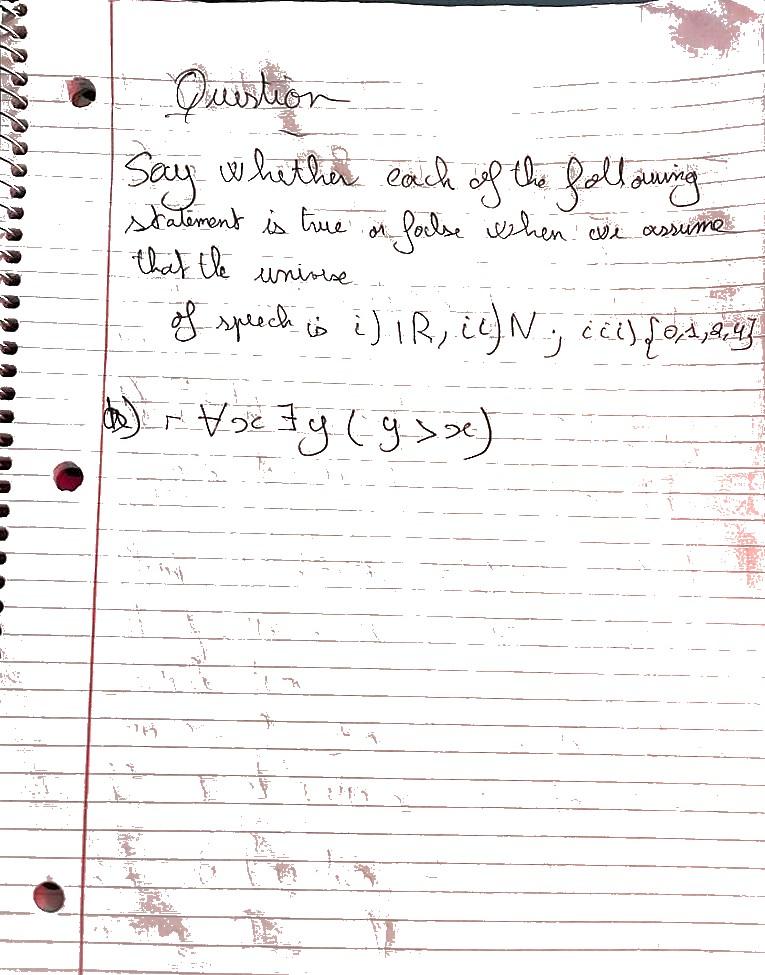 Question
Say whether each of the following
statement is true or false when we assume
that the universe
of speech is i) IR, ii) N ; iii) {0,1,2,4}
) ¬ ∀x ∃ y ( y > x)